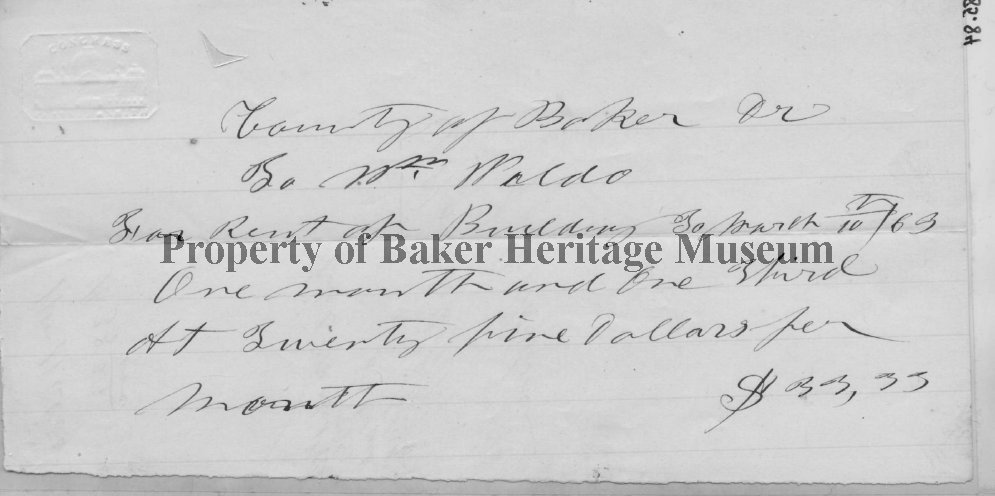 CONGRESS
85.84
County of Baker Dr
To Wm Waldo
For Rent of Building To March 10th/63
Property of Baker Heritage Museum
One month and One Third
At Twenty five Dollars per
month $33,33